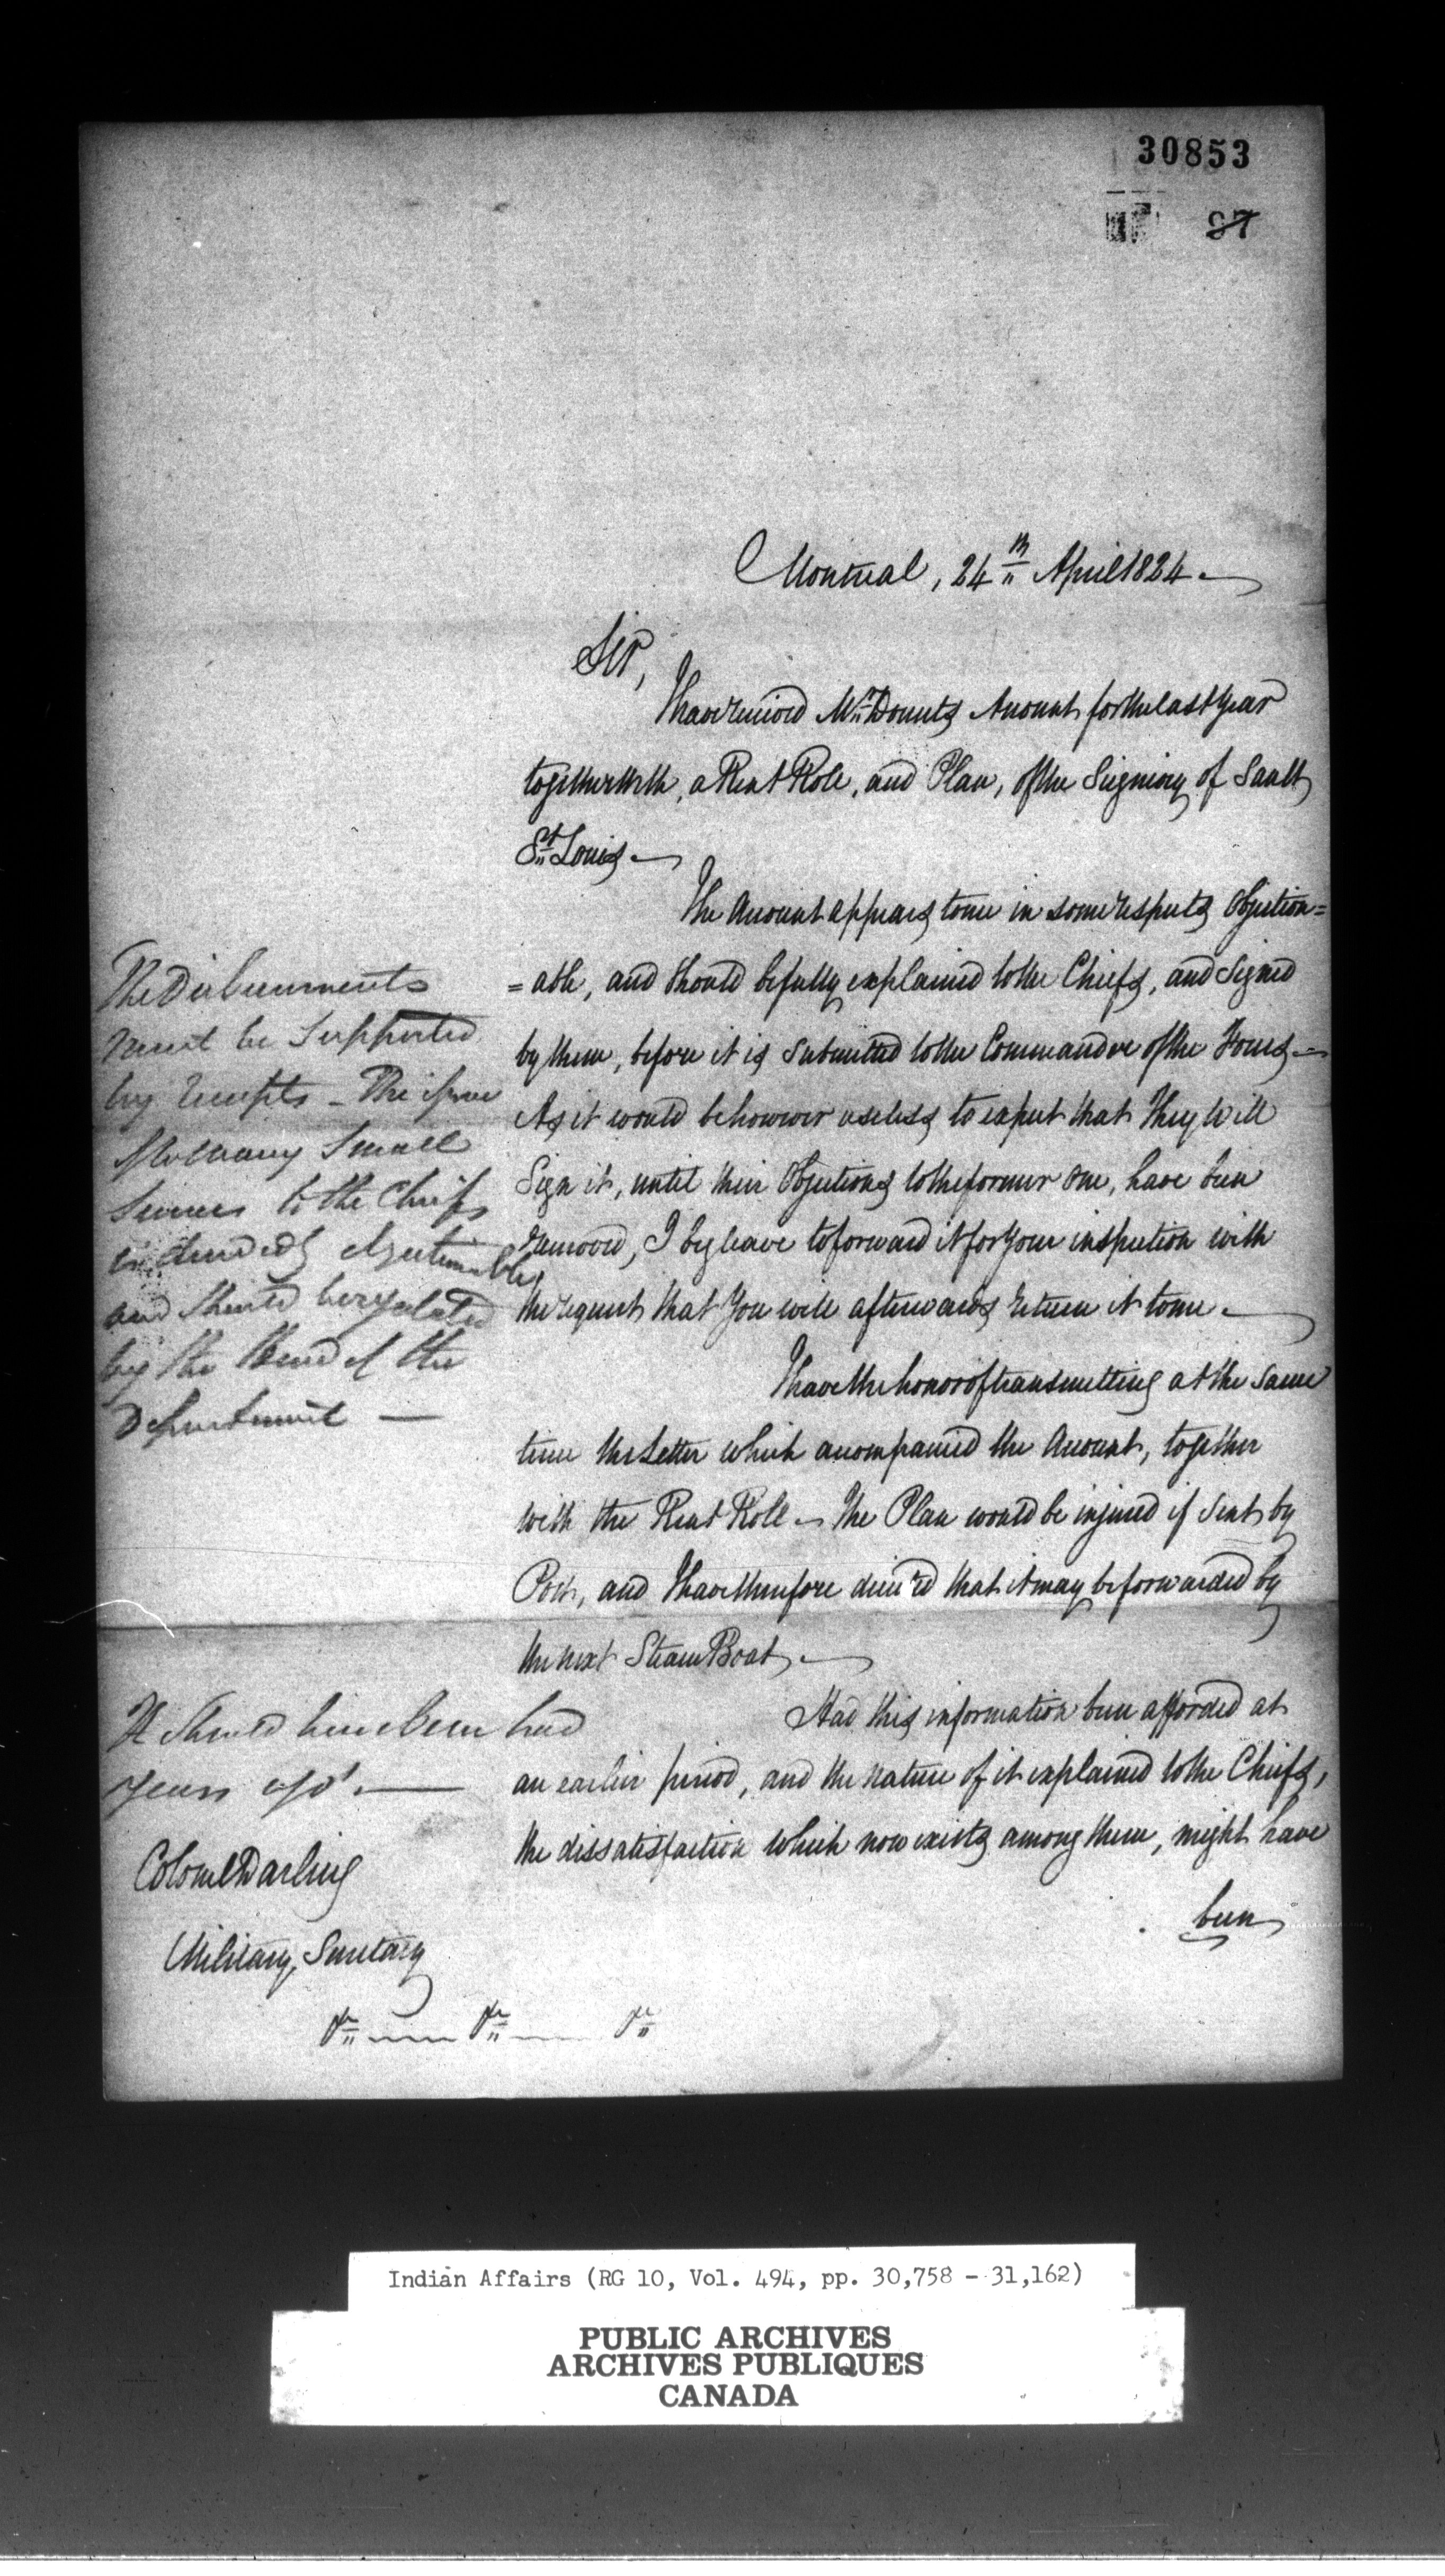 30853
97
Montreal, 24th April 1824.
Sir,
I have received Mr. Doucets Account for the last Year
together with, a Rent Role, and Plan, of the Seigniory of Sault
St. Louis.
The Account appears to me in some respects Objection=
=able, and should be fully explained to the Chiefs, and Signed
by them, before it is submitted to the Commander of the Forces
As it would be however useless to expect that They will
Sign it, until their Objections to the former one, have been
removed, I beg leave to forward it for Your inspection with
the request that You will afterwards return it to me.
I have the honor of transmitting at the same
time the Letter which accompanied the Account, together
with the Rent Roll. The Plan would be injured if Sent by
Post, and I have therefore desired that it may be forwarded by
the next Steam Boat.
Had this information been afforded at
an earlier period, and the nature of it explained to the Chiefs,
the dissatisfaction which now exists among them, might have
been
The Disbursements
must be Supported
by receipts - The issue
of so many Small
Sums to the Chiefs
is decidedly objectionable,
and should be regulated
by the Head of the
Department —
It should have been had
years ago! —
Colonel Darling
Military Secretary
&c. &c. &c.
Indian Affairs (RG 10, Vol. 494, pp. 30,758 - 31,162)
PUBLIC ARCHIVES
ARCHIVES PUBLIQUES
CANADA